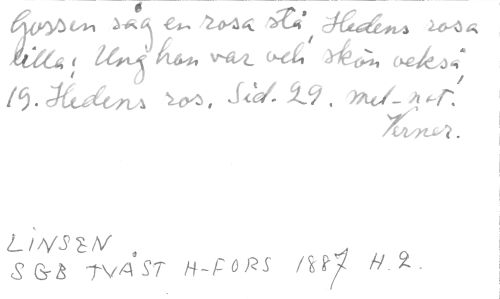 Gossen såg en rosa stå, Hedens rosa
lilla; Ung hon var och skön också,
19. Hedens ros. Sid. 29. mel-not.
Verner.
LINSEN
SGB TVÅST H-FORS 1887 H.2.